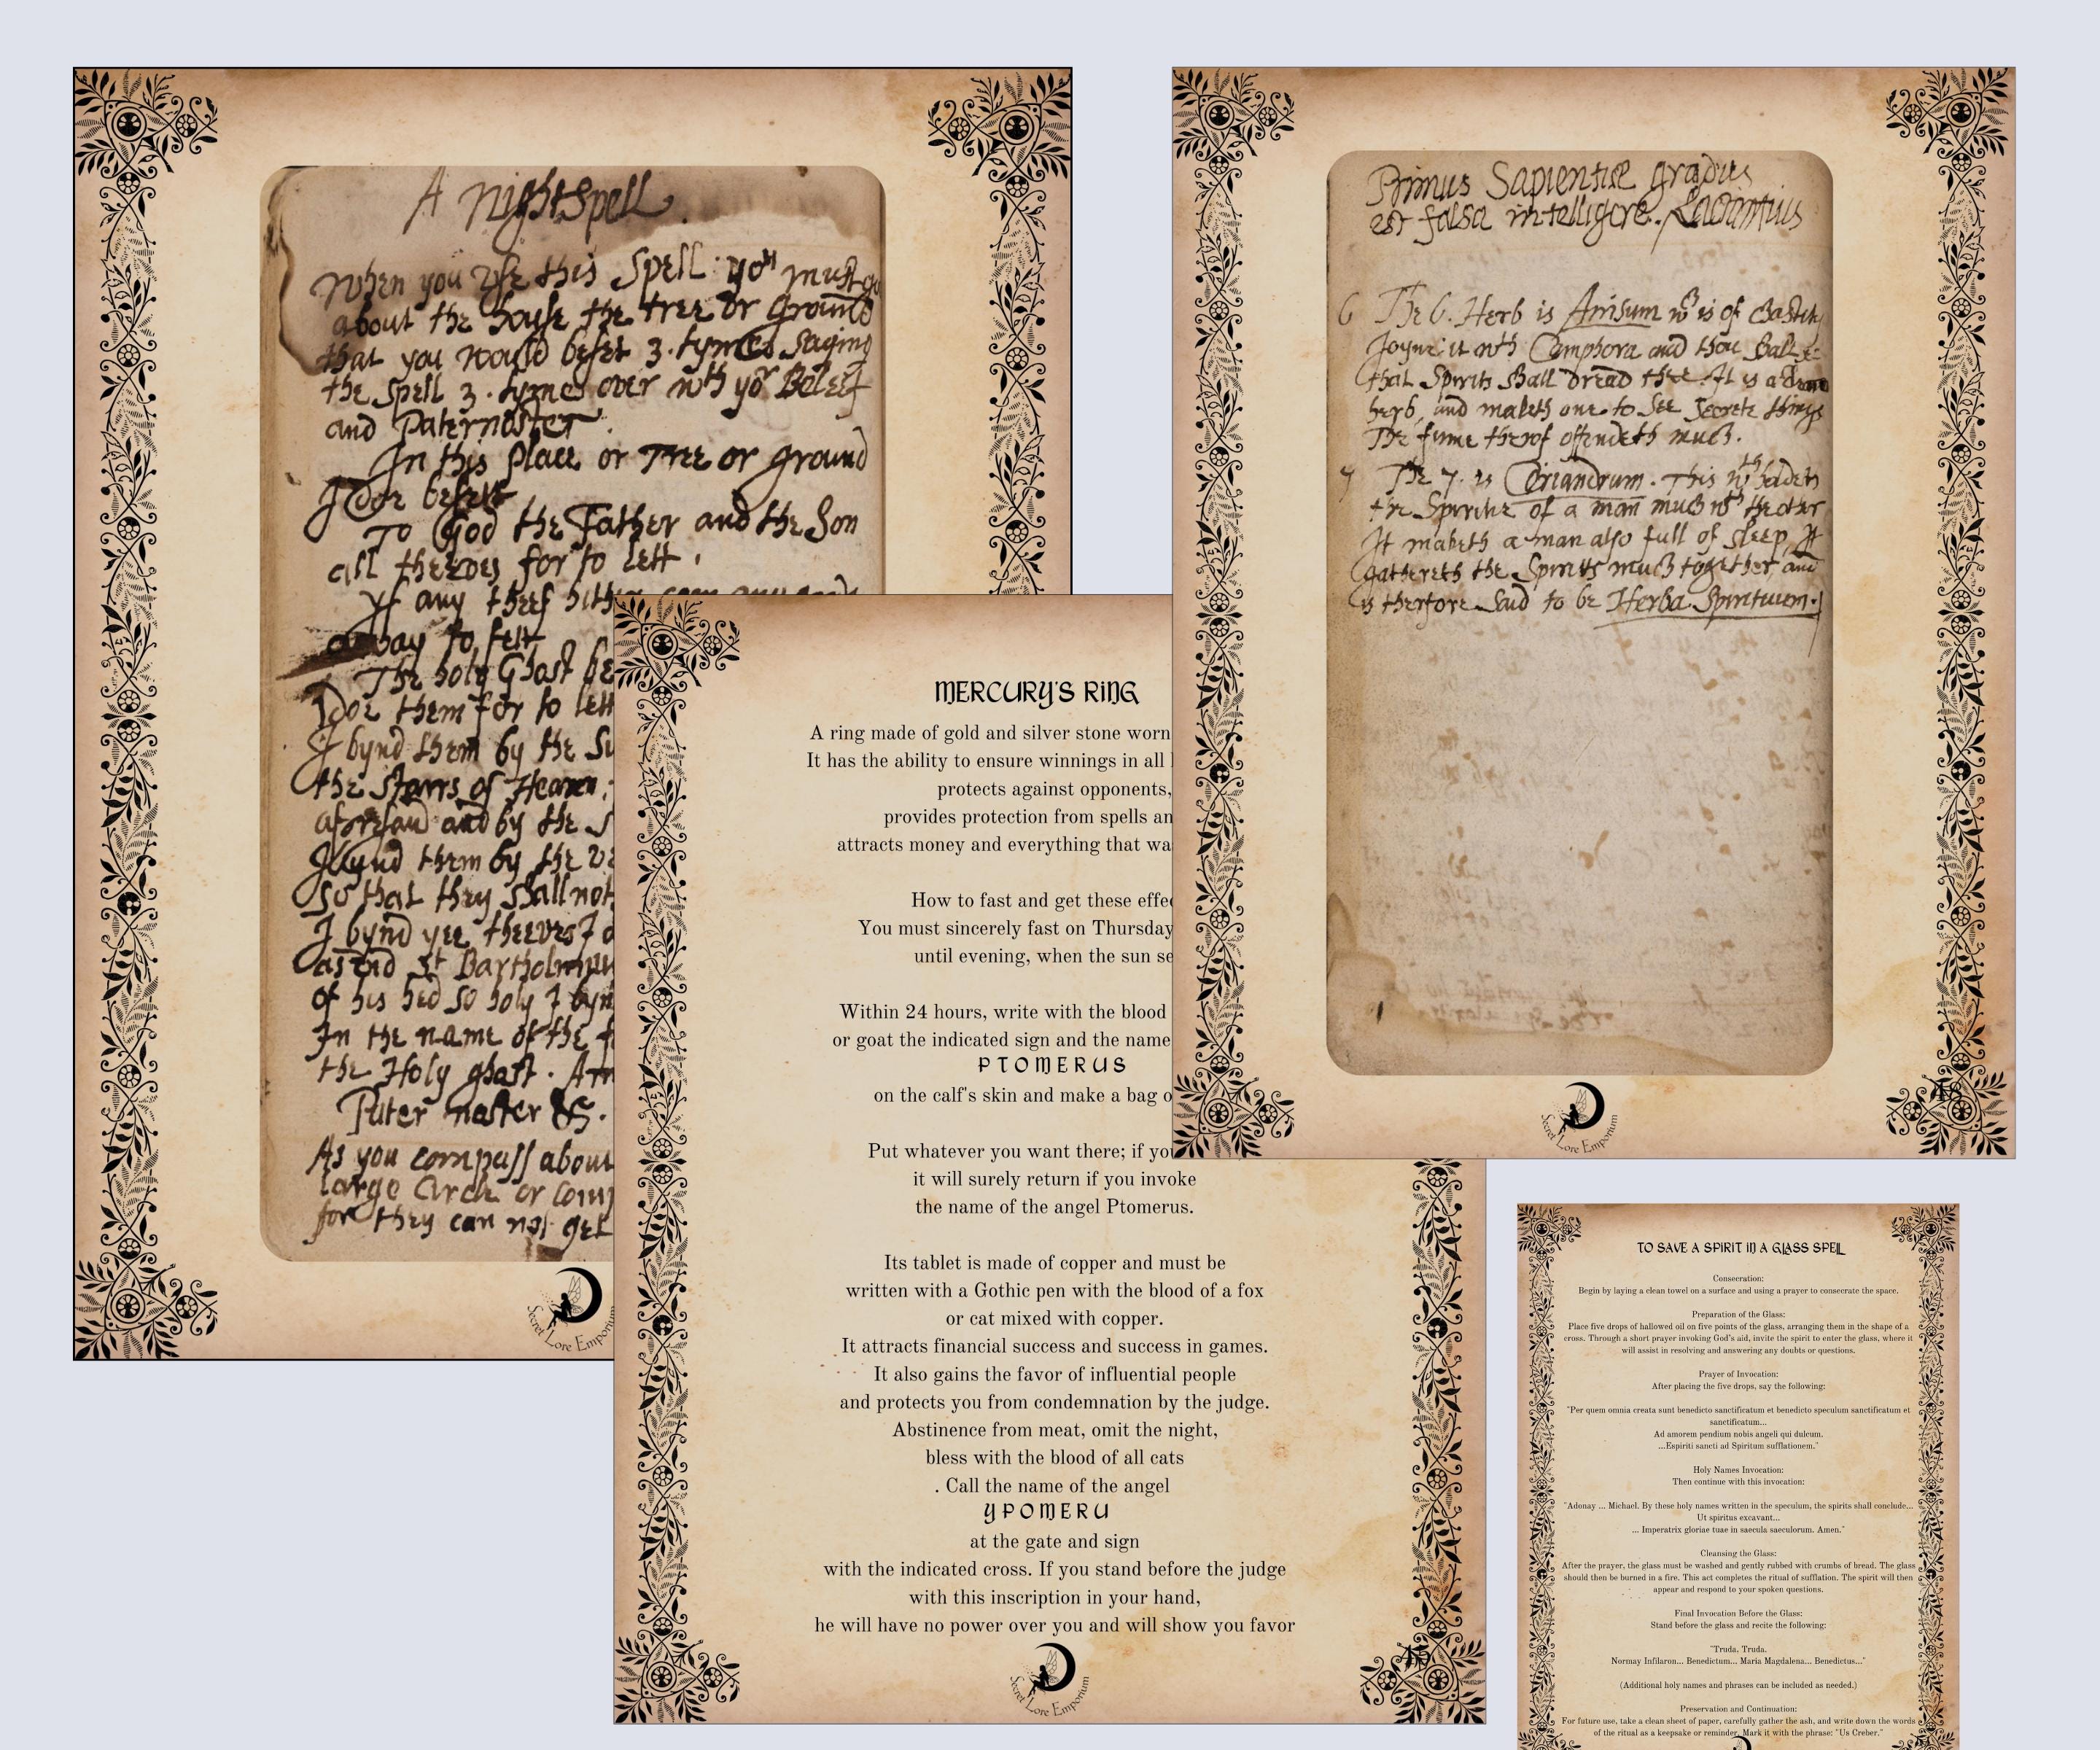 A nightSpell
When you Use this Spell yoᵘ must go
about the house the tree or ground
that you would besett 3. tymes saying
the spell 3. tymes over wth yor Beleef
and Paternoster.
In this place or Tree or ground
I doe besett
To God the Father and the Son
all theeves for to lett.
If any theef hither com any
away to fett
The holy Ghost be
doe them for to lett
I bynd them by the Su
the starrs of Heaven
aforesaid and by the S
I bynd them by the
So that they shall not
I bynd yee theeves I
as end St Bartholmew
of his hed so holy I byn
In the name of the f
the Holy ghost. Am
Pater noster &c.
As you compass about
large Circle or Comp
for they can not get
Secret Lore Emporium
MERCURY'S RING
A ring made of gold and silver stone worn
It has the ability to ensure winnings in all
protects against opponents,
provides protection from spells an
attracts money and everything that wa
How to fast and get these effec
You must sincerely fast on Thursday
until evening, when the sun se
Within 24 hours, write with the blood
or goat the indicated sign and the name
PTOMERUS
on the calf's skin and make a bag o
Put whatever you want there; if you
it will surely return if you invoke
the name of the angel Ptomerus.
Its tablet is made of copper and must be
written with a Gothic pen with the blood of a fox
or cat mixed with copper.
It attracts financial success and success in games.
It also gains the favor of influential people
and protects you from condemnation by the judge.
Abstinence from meat, omit the night,
bless with the blood of all cats
. Call the name of the angel
YPOMERU
at the gate and sign
with the indicated cross. If you stand before the judge
with this inscription in your hand,
he will have no power over you and will show you favor
Secret Lore Emporium
45
Primus Sapientiæ gradus
est falsa intelligere. Lactantius
6 The 6. Herb is Anisum wch is of
Joyne it wth Camphora and thou shalt
that Spirits shall dread thee. It is a
herb, and maketh one to See Secrete things
The fume therof offendeth much.
7 The 7. is Coriandrum. This
the Spirite of a man much wth the other
It maketh a man also full of sleep, It
gathereth the Spirits much together, and
is therfore Said to be Herba Spirituum.
Secret Lore Emporium
TO SAVE A SPIRIT IN A GLASS SPELL
Consecration:
Begin by laying a clean towel on a surface and using a prayer to consecrate the space.
Preparation of the Glass:
Place five drops of hallowed oil on five points of the glass, arranging them in the shape of a
cross. Through a short prayer invoking God's aid, invite the spirit to enter the glass, where it
will assist in resolving and answering any doubts or questions.
Prayer of Invocation:
After placing the five drops, say the following:
"Per quem omnia creata sunt benedicto sanctificatum et benedicto speculum sanctificatum et
sanctificatum...
Ad amorem pendium nobis angeli qui dulcum.
...Espiriti sancti ad Spiritum sufflationem."
Holy Names Invocation:
Then continue with this invocation:
"Adonay ... Michael. By these holy names written in the speculum, the spirits shall conclude...
Ut spiritus excavant...
... Imperatrix gloriae tuae in saecula saeculorum. Amen."
Cleansing the Glass:
After the prayer, the glass must be washed and gently rubbed with crumbs of bread. The glass
should then be burned in a fire. This act completes the ritual of sufflation. The spirit will then
appear and respond to your spoken questions.
Final Invocation Before the Glass:
Stand before the glass and recite the following:
"Truda, Truda.
Normay Infilaron... Benedictum... Maria Magdalena... Benedictus..."
(Additional holy names and phrases can be included as needed.)
Preservation and Continuation:
For future use, take a clean sheet of paper, carefully gather the ash, and write down the words
of the ritual as a keepsake or reminder. Mark it with the phrase: "Us Creber."